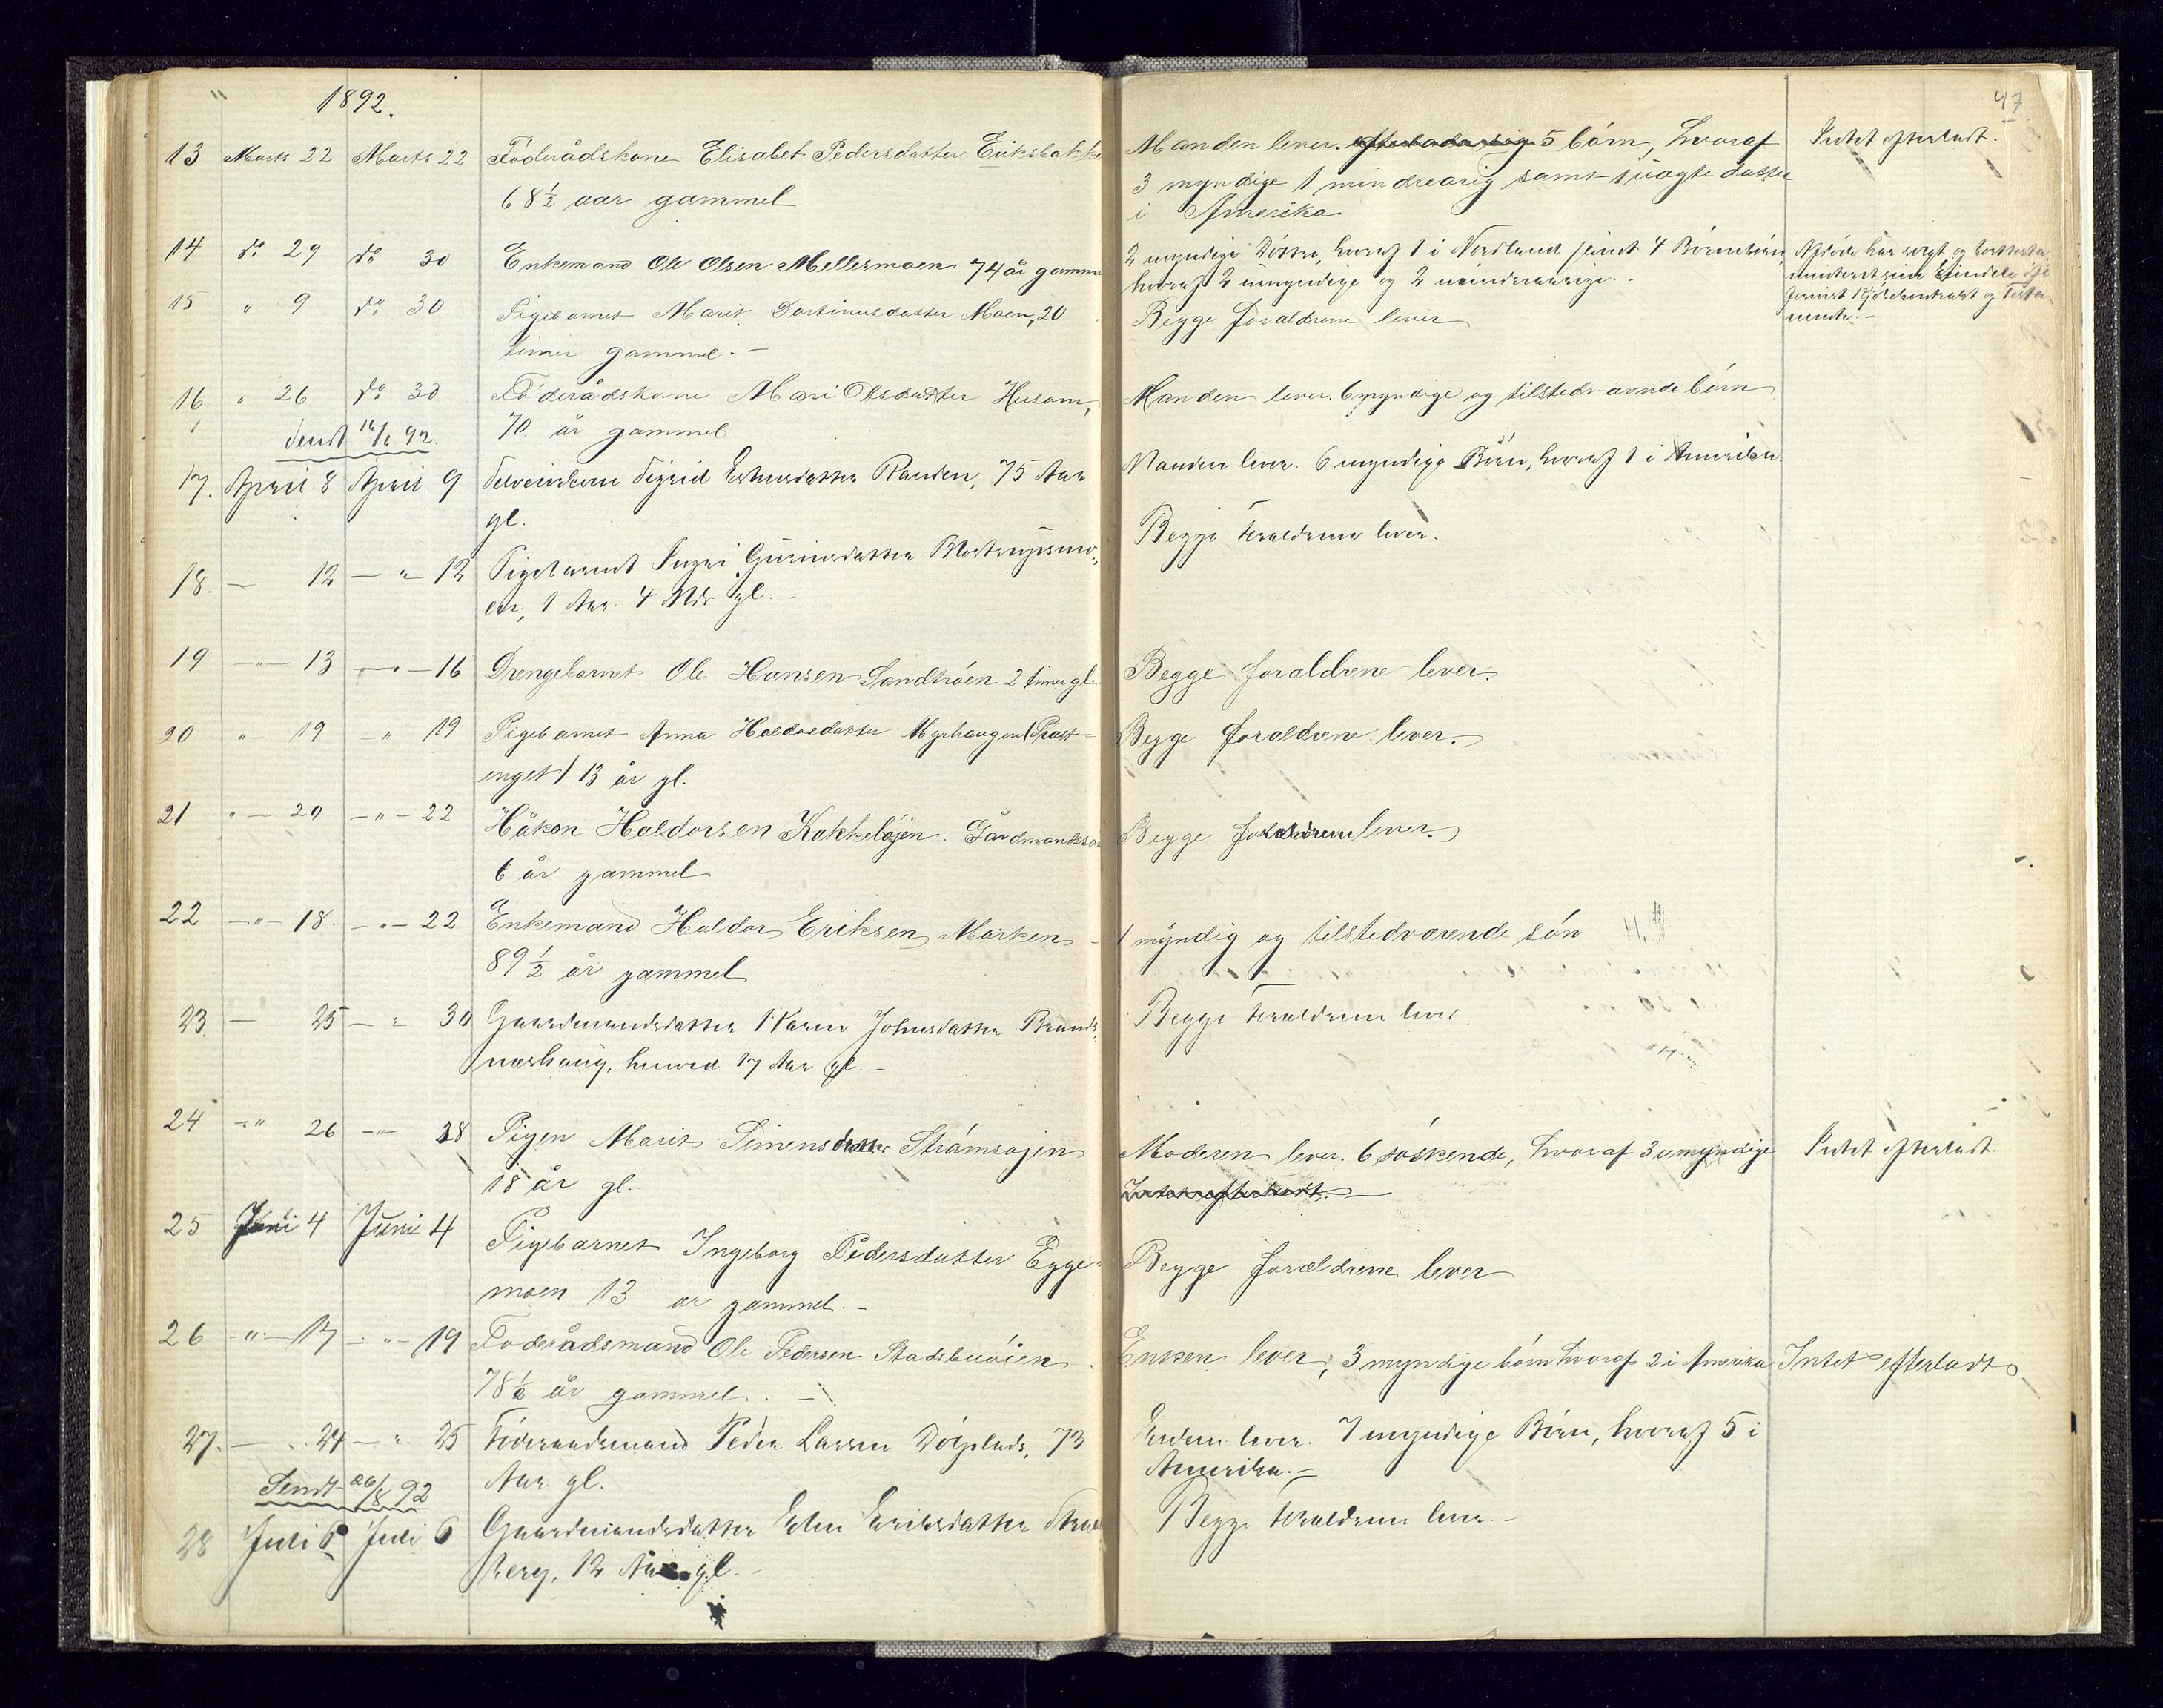 1892.
47
13 Marts 22 Marts 22 Föderådskone Elisabet Pedersdatter Eriksbakke
68½ aar gammel
Manden lever. 5 börn, hvoraf
3 myndige 1 mindreårig samt 1 uægte datter
i Amerika
Intet efterladt.
14 do 29 do 30 Enkemand Ole Olsen Mellesmoen 74 år gammel
2 myndige Döttre, hvoraf 1 i Nordland samt 4 Börnebörn,
hvoraf 2 umyndige og 2 mindreaarige. -
Afdöde har solgt og
sine Eiendele
og Testa-
mente. -
15 " 9 do 30 Pigebarnet Marit Dortinusdatter Moen, 20
timer gammel. -
Begge forældrene lever
16 " 26 do 30 Föderådskone Mari Olsdatter Husom,
70 år gammel
Manden lever. 6 myndige og tilstedeværende börn
Sendt 16/6 92.
17. April 8 April 9 Selveierkone Sigrid Estensdatter Randen, 75 Aar
gl.
Manden lever. 6 myndige Börn, hvoraf 1 i Amerika.
18. - 12 - " 12 Pigebarnet Ingri Gurinusdatter
en, 1 Aar 4 Mdr gl. -
Begge Foræld­rene lever.
19 - " - 13 - " - 16 Drengebarnet Ole Hansen Sandtröen 2 timer gl.
Begge forældrene lever.
20 " - 19 - " 19 Pigebarnet Anna Haldosdatter Myrhaugen (Præst-
enget) 13 år gl.
Begge forældrene lever.
21 " - 20 - " - 22 Håkon Haldorsen Kokkelöjen. Gårdmandssön
6 år gammel
Begge forældrene lever.
22 - " - 18. - " - 22 Enkemand Haldor Eriksen Morken
89½ år gammel
1 myndig og tilstedværende sön
23. - 25 - " 30 Gaardmandsdatter Karen Johnsdatter
haug, henved 17 Aar gl. -
Begge Forældrene lever.
24 - " 26 - " 28 Pigen Marit Simensdatter Strömsojen
18 år gl.
Moderen lever. 6 söskende, hvoraf 3 umyndige
Intet efterladt.
25 Juni 4 Juni 4 Pigebarnet Ingeborg Pedersdatter Egge-
moen 13 år gammel. -
Begge forældrene lever
26 " - 17 - " - 19 Föderådsmand Ole Pedersen Stadsbuöien
78½ år gammel. -
Enken lever, 3 myndige börn hvoraf 2 i Amerika
Intet efterladt
27. - " 24 - " 25 Föderaadsmand Peder Larsen Dölplads, 73
Aar gl.
Enken lever. 7 myndige Börn, hvoraf 5 i
Amerika. -
Sendt 26/8 92
28 Juli 6 Juli 6 Gaardmandsdatter Elen Eriksdatter
berg, 12 Aar gl. -
Begge Forældrene lever. -